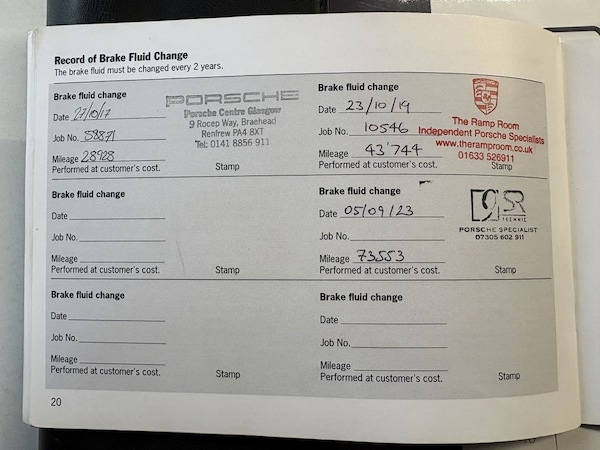 Record of Brake Fluid Change
The brake fluid must be changed every 2 years.
Brake fluid change
Date 27/10/17
Job No. 58871
Mileage 28928
Performed at customer's cost.
Stamp
PORSCHE
Porsche Centre Glasgow
9 Rocep Way, Braehead
Renfrew PA4 8XT
Tel: 0141 8856 911
Brake fluid change
Date 23/10/19
Job No. 10546
Mileage 43'744
Performed at customer's cost.
Stamp
The Ramp Room
Independent Porsche Specialists
www.theramproom.co.uk
01633 526911
Brake fluid change
Date
Job No.
Mileage
Performed at customer's cost.
Stamp
Brake fluid change
Date 05/09/23
Job No.
Mileage 73553
Performed at customer's cost.
Stamp
9SR
TECHNIC
PORSCHE SPECIALIST
07305 602 911
Brake fluid change
Date
Job No.
Mileage
Performed at customer's cost.
Stamp
Brake fluid change
Date
Job No.
Mileage
Performed at customer's cost.
Stamp
20